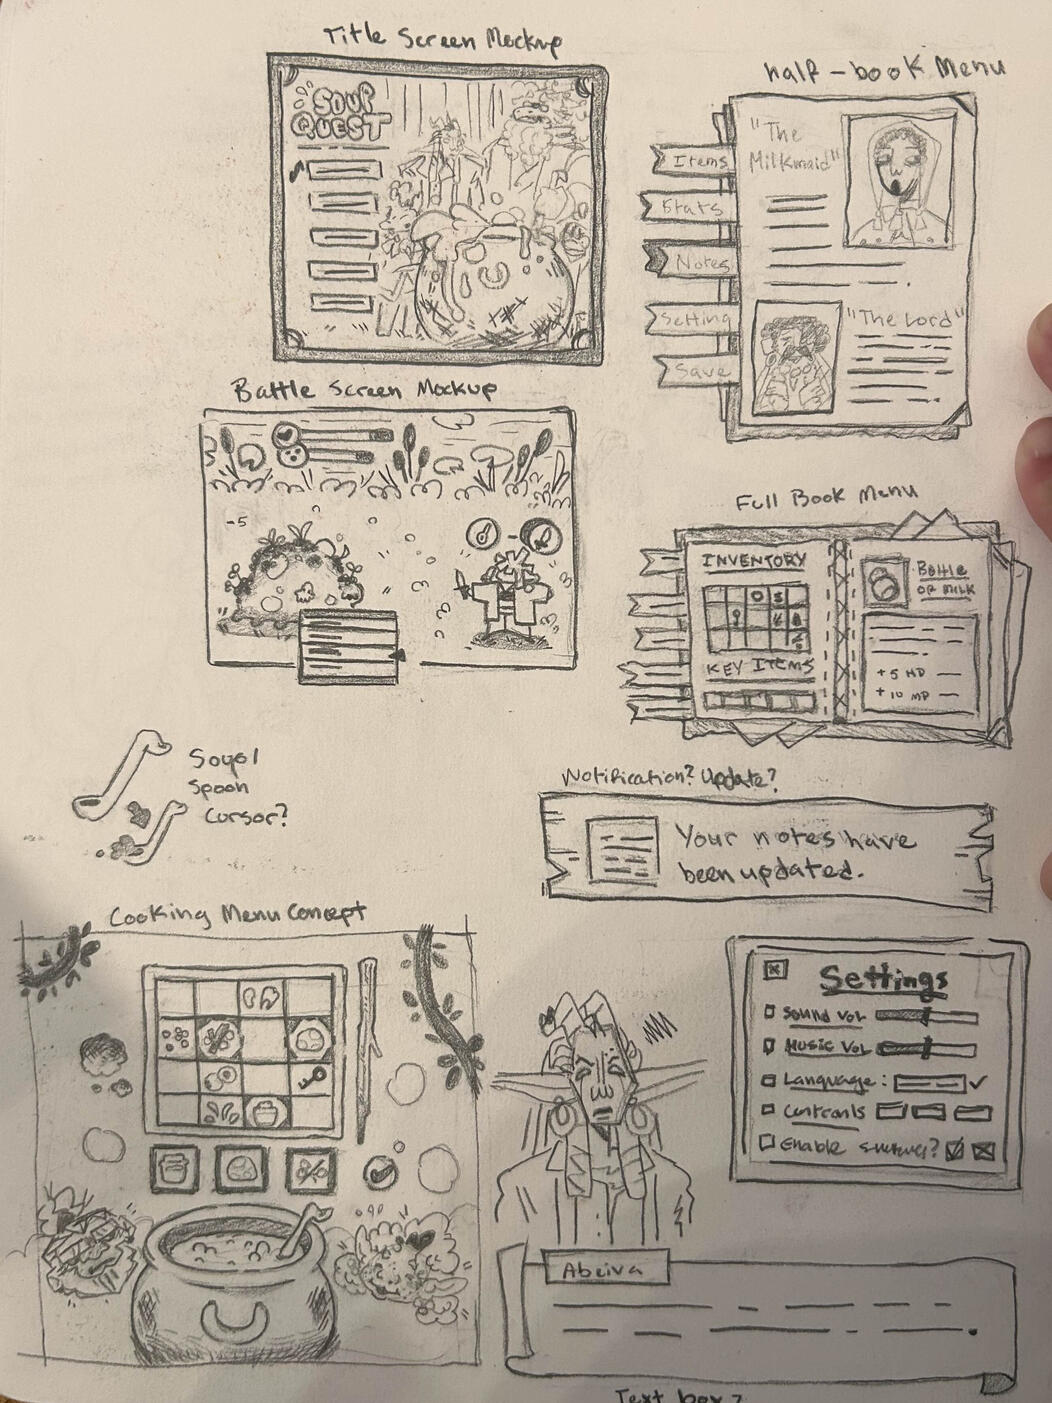 Title Screen Mockup
SOUP
QUEST
half-book Menu
"The
Milkmaid"
Items
Stats
Notes
Setting
Save
"The Lord"
Battle Screen Mockup
-5
Full Book Menu
INVENTORY
KEY ITEMS
Bottle
OF MILK
+5 HP
+10 MP
Spoon
Cursor?
Notification? Update?
Your notes have
been updated.
Cooking Menu Concept
Settings
Sound Vol
Music Vol
Language:
Controls
Enable
Abeiva
Text box?